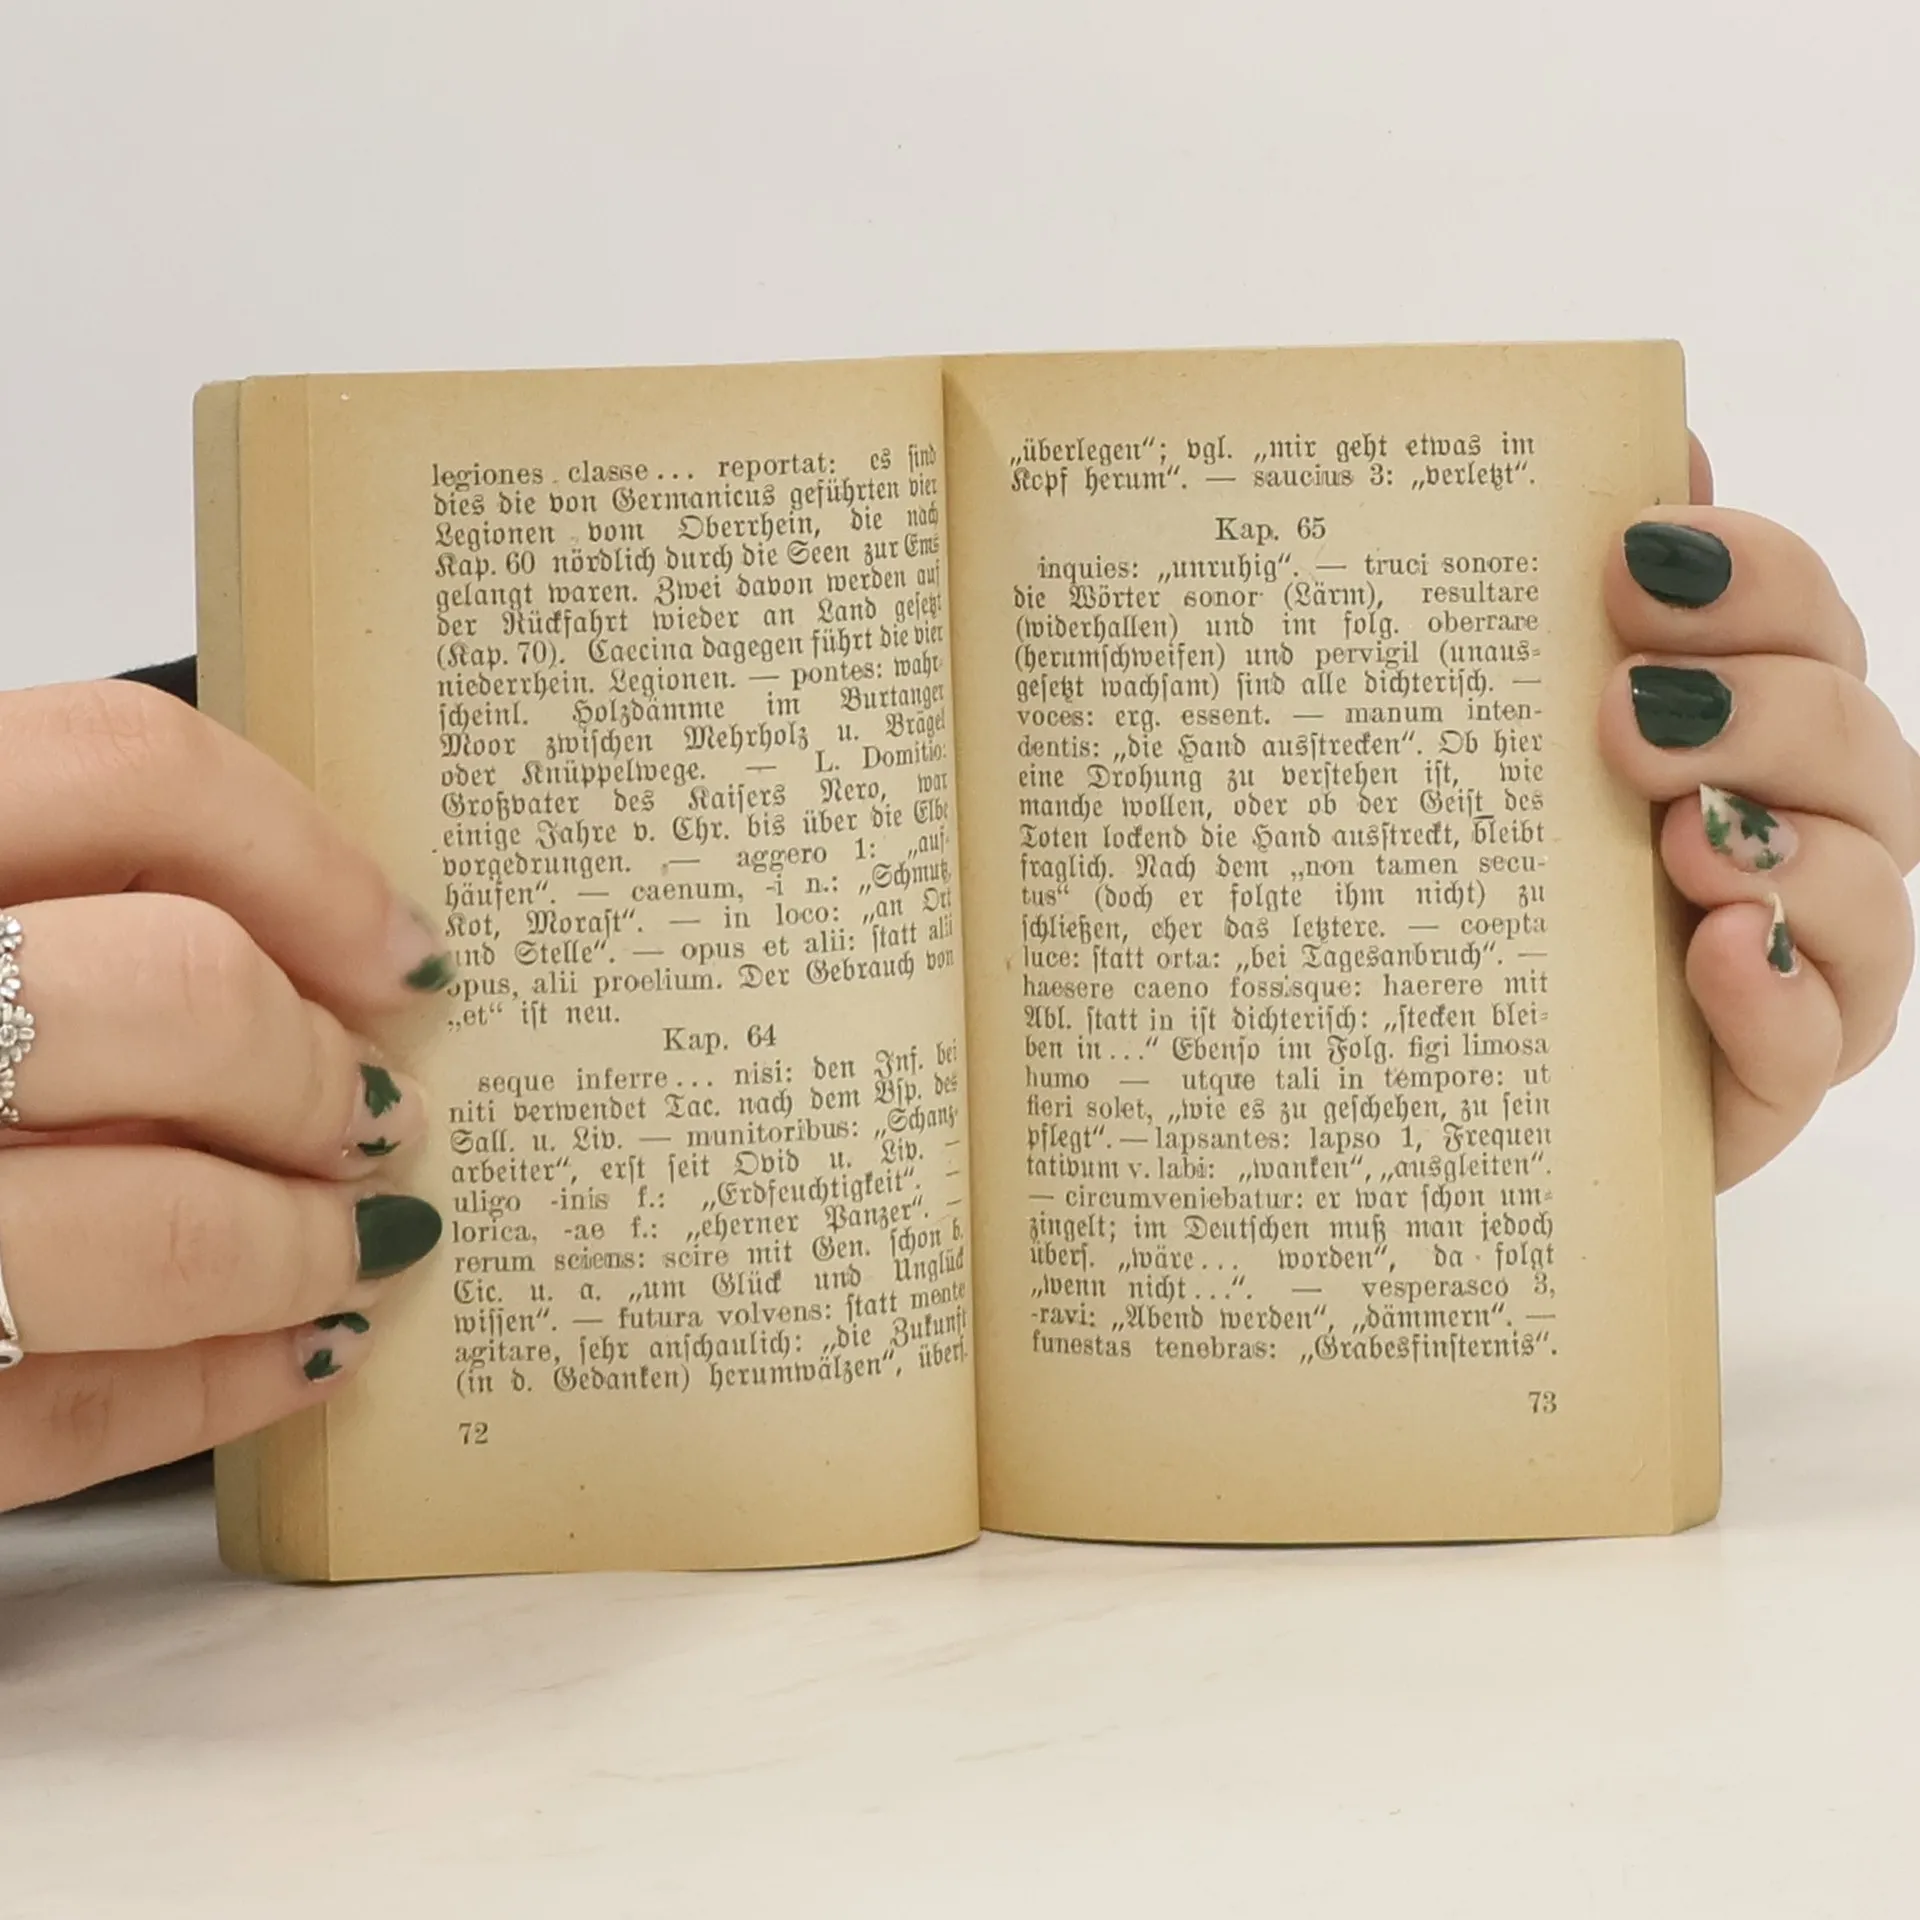 legiones classe... reportat: es sind
dies die von Germanicus geführten vier
Legionen vom Oberrhein, die nach
Kap. 60 nördlich durch die Seen zur Ems
gelangt waren. Zwei davon werden auf
der Rückfahrt wieder an Land gesetzt
(Kap. 70). Caecina dagegen führt die vier
niederrhein. Legionen. — pontes: wahr-
scheinl. Holzdämme im Burtanger
Moor zwischen Mehrholz u. Brägel
oder Knüppelwege. — L. Domitio:
Großvater des Kaisers Nero, war
einige Jahre v. Chr. bis über die Elbe
vorgedrungen. — aggero 1: „auf-
häufen“. — caenum, -i n.: „Schmutz,
Kot, Morast“. — in loco: „an Ort
und Stelle“. — opus et alii: statt alii
opus, alii proelium. Der Gebrauch von
„et“ ist neu.
Kap. 64
seque inferre... nisi: den Inf. bei
niti verwendet Tac. nach dem Bsp. des
Sall. u. Liv. — munitoribus: „Schanz-
arbeiter“, erst seit Ovid u. Liv. —
uligo -inis f.: „Erdfeuchtigkeit“. —
lorica, -ae f.: „eherner Panzer“. —
rerum sciens: scire mit Gen. schon b.
Cic. u. a. „um Glück und Unglück
wissen“. — futura volvens: statt mente
agitare, sehr anschaulich: „die Zukunft
(in d. Gedanken) herumwälzen“, übers.
72
„überlegen“; vgl. „mir geht etwas im
Kopf herum“. — saucius 3: „verletzt“.
Kap. 65
inquies: „unruhig“. — truci sonore:
die Wörter sonor (Lärm), resultare
(widerhallen) und im folg. oberrare
(herumschweifen) und pervigil (unaus-
gesetzt wachsam) sind alle dichterisch. —
voces: erg. essent. — manum inten-
dentis: „die Hand ausstrecken“. Ob hier
eine Drohung zu verstehen ist, wie
manche wollen, oder ob der Geist des
Toten lockend die Hand ausstreckt, bleibt
fraglich. Nach dem „non tamen secu-
tus“ (doch er folgte ihm nicht) zu
schließen, eher das letztere. — coepta
luce: statt orta: „bei Tagesanbruch“. —
haesere caeno fossisque: haerere mit
Abl. statt in ist dichterisch: „stecken blei-
ben in...“ Ebenso im Folg. figi limosa
humo — utque tali in tempore: ut
fieri solet, „wie es zu geschehen, zu sein
pflegt“. — lapsantes: lapso 1, Frequen
tativum v. labi: „wanken“, „ausgleiten“.
— circumveniebatur: er war schon um-
zingelt; im Deutschen muß man jedoch
übers. „wäre... worden“, da folgt
„wenn nicht...“. — vesperasco 3,
-ravi: „Abend werden“, „dämmern“. —
funestas tenebras: „Grabesfinsternis“.
73